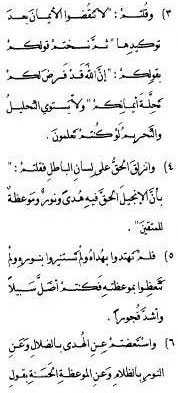 ٣) وقلتم: "لا تنقضوا الأيمان بعد
توكيدها" ثم نسختم قولكم
بقولكم: "إن الله قد فرض لكم
تحلة أيمانكم" ولا يستوي التحليل
والتحريم لو كنتم تعلمون.
٤) وانزلق الحق على لسان الباطل فقلتم: "
بأن الإنجيل الحق فيه هدى ونور وموعظة
للمتقين"
٥) فلم تهتدوا بهداه ولم تستنيروا بنوره ولم
تتعظوا بموعظته فكنتم أضل سبيلا
وأشد فجورا.
٦) واستعضتم عن الهدى بالضلال وعن
النور بالظلام وعن الموعظة الحسنة بقول